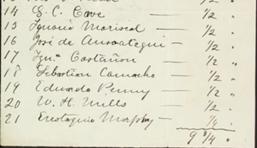 14 S. C. Cave — 1/2 "
15 Ignacio Mariscal — 1/2 "
16 José de — 1/2 "
17 Jn.º Castañon — 1/2 "
18 Sebastian Camacho — 1/2 "
19 Eduardo Penny — 1/2 "
20 W. H. Mills — 1/2 "
21 Eustaquio — "
9 3/4 "